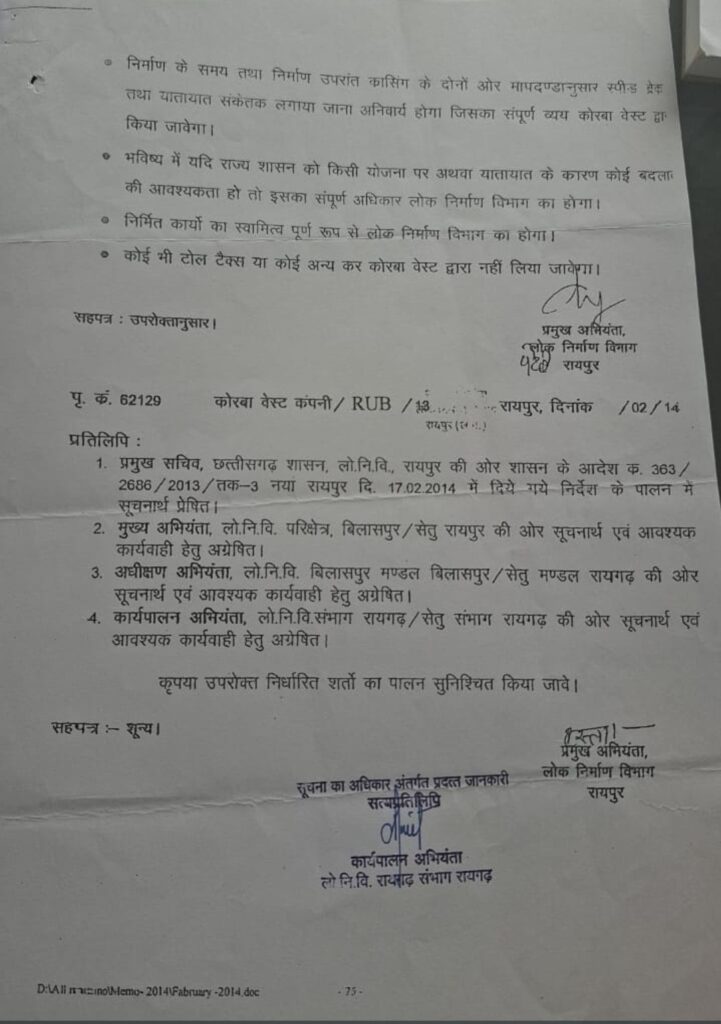 • निर्माण के समय तथा निर्माण उपरांत कासिंग के दोनों ओर मापदण्डानुसार स्पीड ब्रेक
तथा यातायात संकेतक लगाया जाना अनिवार्य होगा जिसका संपूर्ण व्यय कोरबा वेस्ट द्वा
किया जावेगा।
• भविष्य में यदि राज्य शासन को किसी योजना पर अथवा यातायात के कारण कोई बदलाव
की आवश्यकता हो तो इसका संपूर्ण अधिकार लोक निर्माण विभाग का होगा।
• निर्मित कार्यो का स्वामित्व पूर्ण रूप से लोक निर्माण विभाग का होगा।
• कोई भी टोल टैक्स या कोई अन्य कर कोरबा वेस्ट द्वारा नहीं लिया जावेगा।
सहपत्र : उपरोक्तानुसार।
प्रमुख अभियंता,
लोक निर्माण विभाग
रायपुर
पृ. कं. 62129 कोरबा वेस्ट कंपनी/ RUB /13 रायपुर, दिनांक /02/14
रायपुर
प्रतिलिपि :
1. प्रमुख सचिव, छत्तीसगढ़ शासन, लो.नि.वि., रायपुर की ओर शासन के आदेश क. 363/
2686/2013/तक-3 नया रायपुर दि. 17.02.2014 में दिये गये निर्देश के पालन में
सूचनार्थ प्रेषित।
2. मुख्य अभियंता, लो.नि.वि. परिक्षेत्र, बिलासपुर/सेतु रायपुर की ओर सूचनार्थ एवं आवश्यक
कार्यवाही हेतु अग्रेषित।
3. अधीक्षण अभियंता, लो.नि.वि. बिलासपुर मण्डल बिलासपुर/सेतु मण्डल रायगढ़ की ओर
सूचनार्थ एवं आवश्यक कार्यवाही हेतु अग्रेषित।
4. कार्यपालन अभियंता, लो.नि.वि.संभाग रायगढ़/सेतु संभाग रायगढ़ की ओर सूचनार्थ एवं
आवश्यक कार्यवाही हेतु अग्रेषित।
कृपया उपरोक्त निर्धारित शर्तो का पालन सुनिश्चित किया जावे।
सहपत्र :- शून्य।
प्रमुख अभियंता,
लोक निर्माण विभाग
रायपुर
सूचना का अधिकार अंतर्गत प्रदत्त जानकारी
सत्यप्रतिलिपि
कार्यपालन अभियंता
लो.नि.वि. रायगढ़ संभाग रायगढ़
Memo- 2014\Fabruary -2014.doc - 75 -